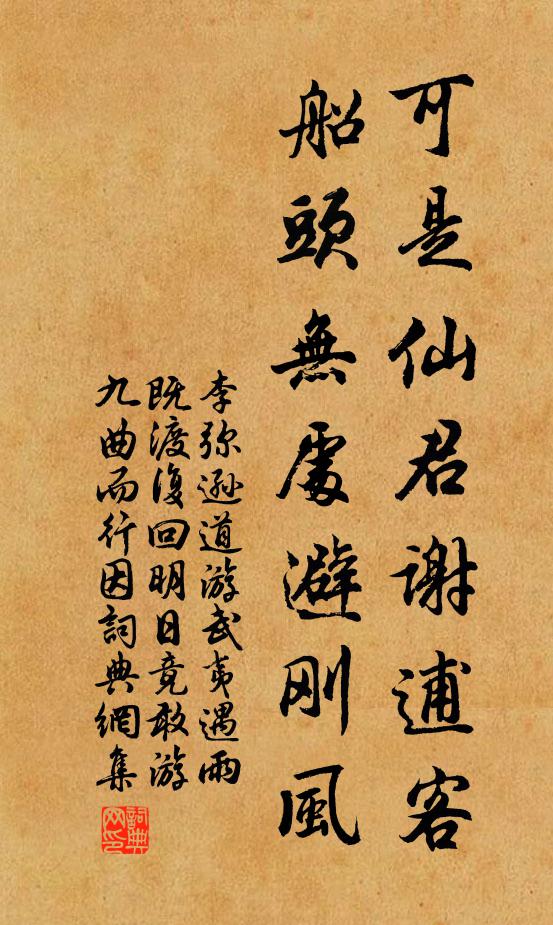 可是仙君謝逋客
船頭無處避剛風
李弥遜道游武夷遇雨
既渡復回明日竟敢游
九曲而行因詞典網集
詞典网印